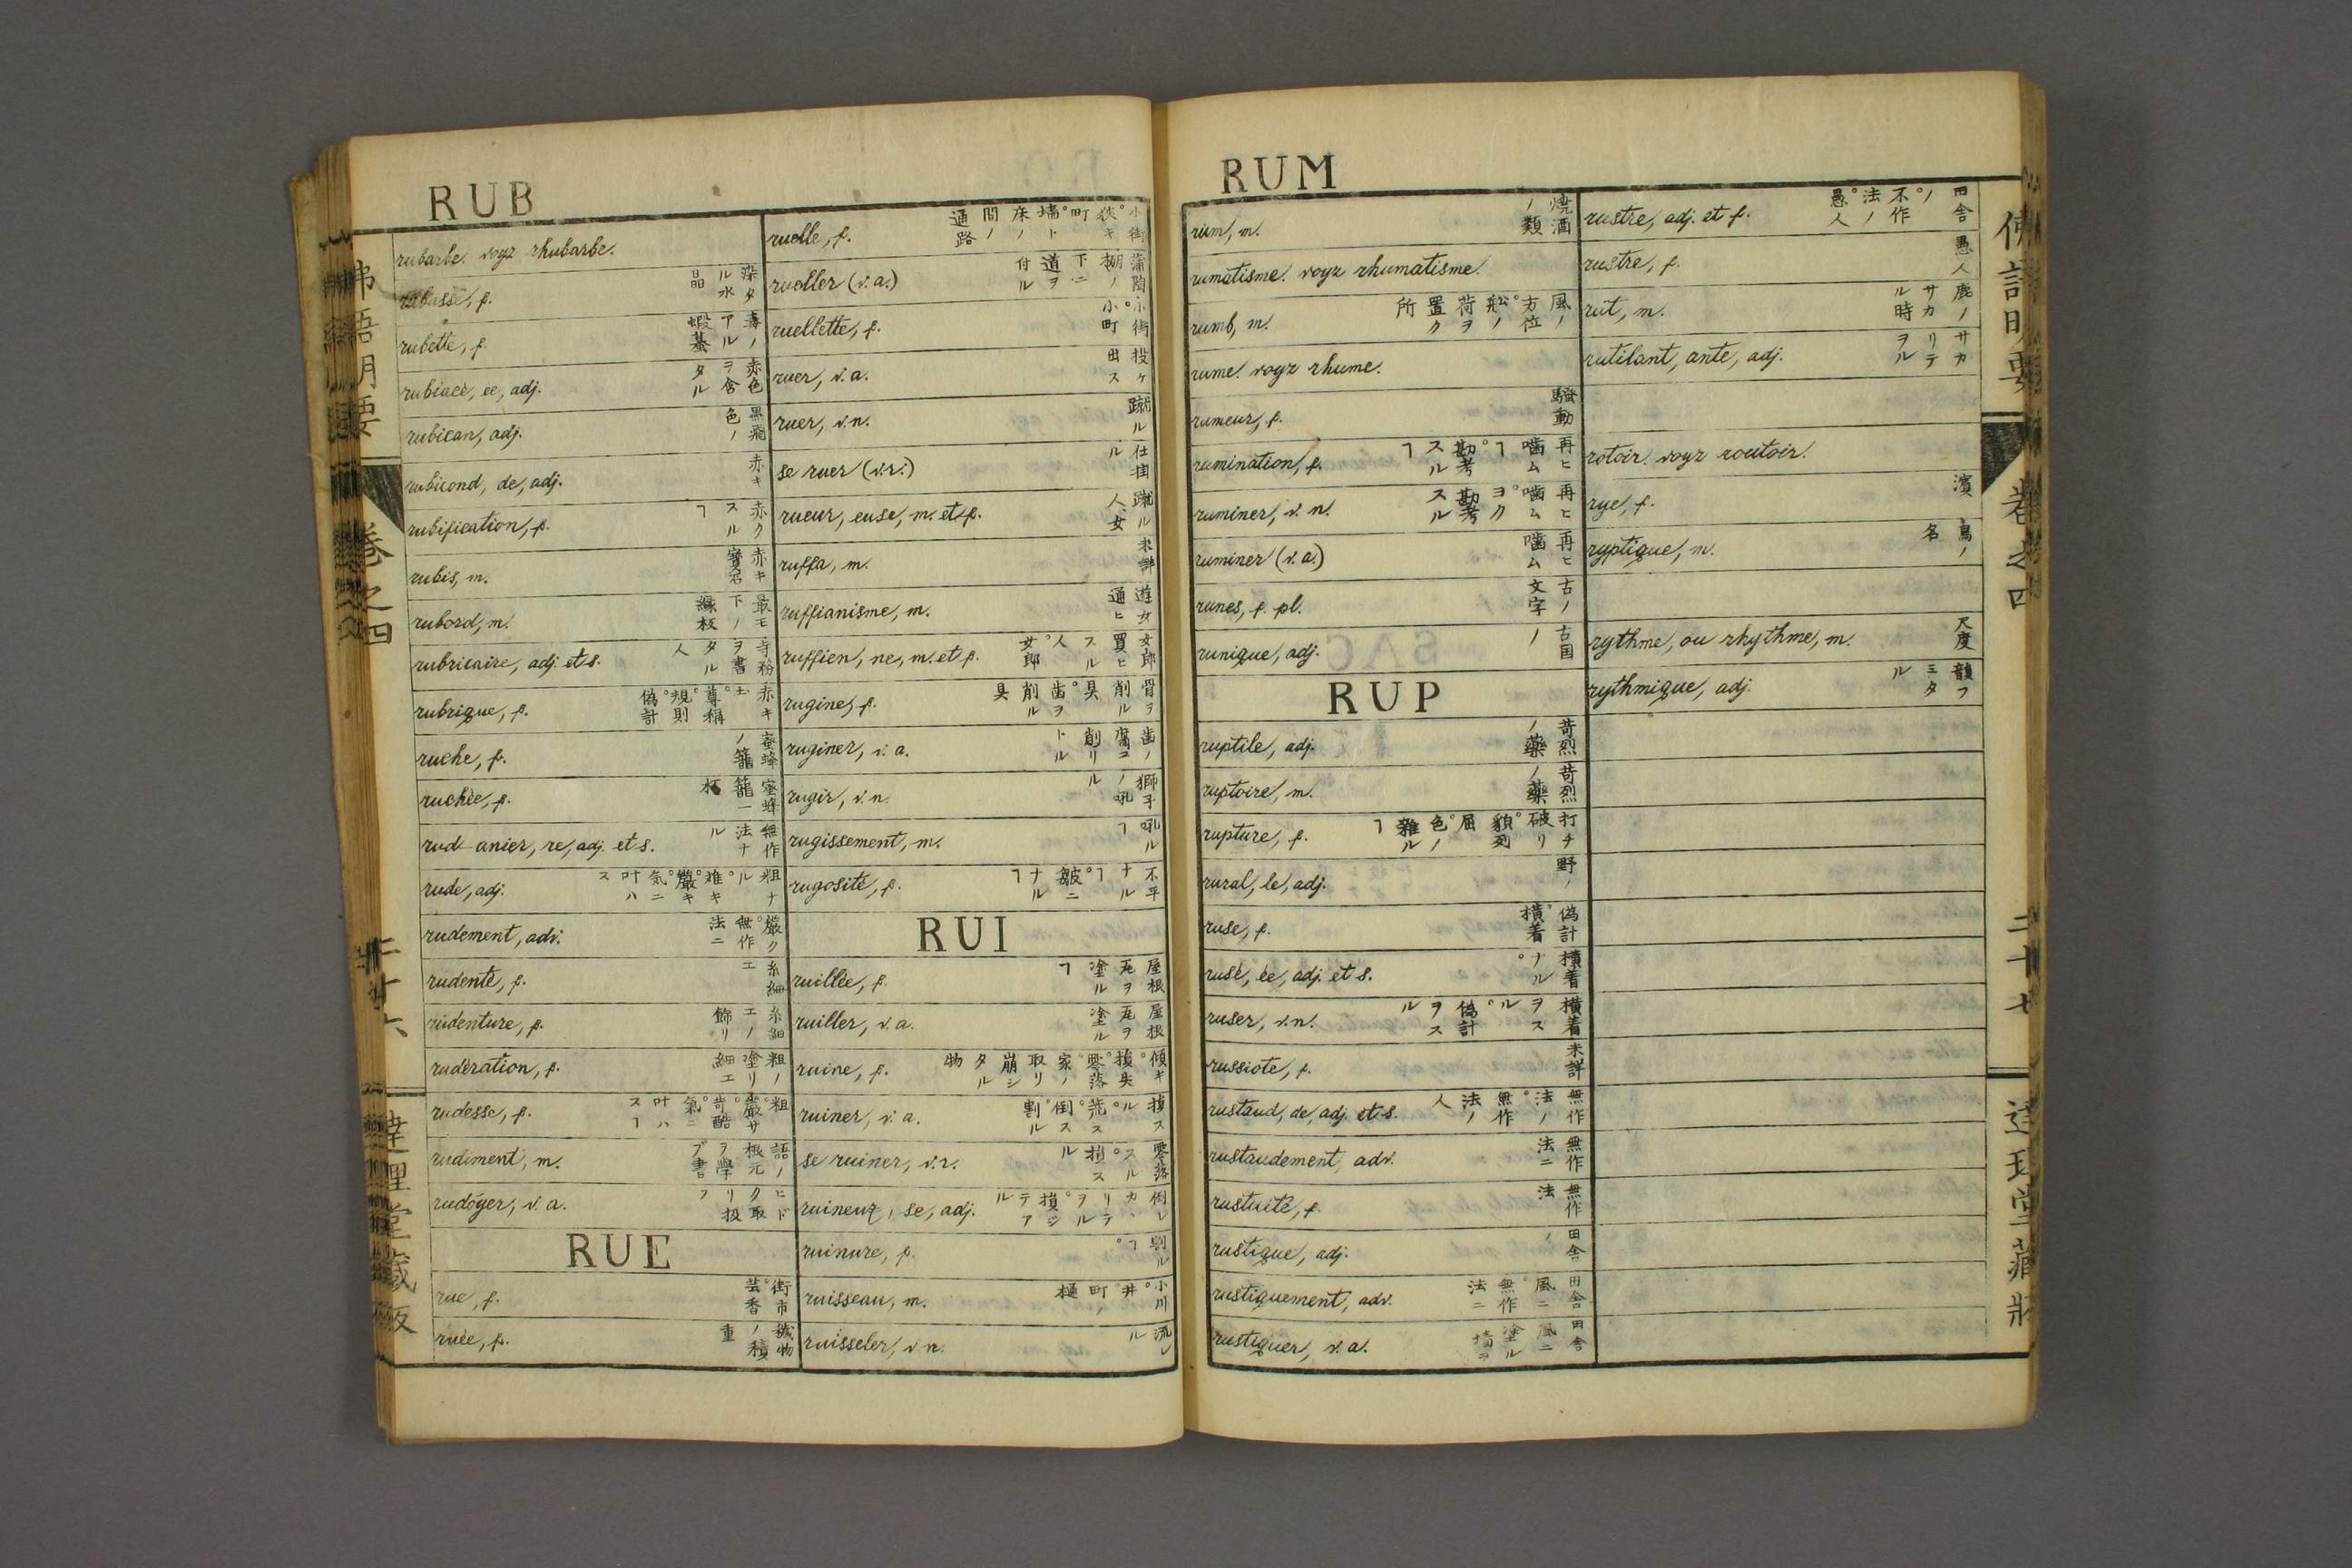 RUB
rubarbe. voyz rhubarbe.
rubasse, f. 染タル水晶
rubette, f. 毒アルノ蝦蟇
rubiacé, ée, adj. 赤色ヲ含タル
rubican, adj. 色ノ
rubicond, de, adj. 赤キ
rubification, f. 赤クスルヿ
rubis, m. 赤キ寶石
rubord, m. 最モ下ノ縁板
rubricaire, adj. et s. ヲ書タル人
rubrique, f. 赤キ土°尊稱°規則°偽計
ruche, f. 蜜蜂ノ籠
ruchée, f. 蜜蜂籠一杯
rud-anier, re, adj. et s. 無作法ナル
rude, adj. 粗ナル°難キ°嚴キ°気ニ叶ハス
rudement, adv. 嚴ク°無作法ニ
rudenté, f. 糸細エ
rudenture, f. 糸細エノ飾リ
rudération, f. 粗ノ塗リ細エ
rudesse, f. 粗°嚴サ°苛酷°氣ニ叶ハスヿ
rudiment, m. 語ノ根元ヲ學ブ書
rudoyer, v. a. ヒドク取リ扱フ
RUE
rue, f. 街市°芸香
ruée, f. 穢物ノ積重
ruelle, f. 小街°狭キ町°墻ト床ノ間ノ通路
rueller (v. a.) 蒲陶棚ノ下ニ道ヲ付ル
ruellette, f. 小街°小町
ruer, v. a. 投ケ出ス
ruer, v. n. 蹴ル
se ruer (v. r.) 仕掛ル
rueur, euse, m. et f. 蹴ル人、女
ruffa, m. 未詳
ruffianisme, m. 遊女通ヒ
ruffien, ne, m. et f. 女郎買ヒスル人°女郎
rugine, f. 骨ヲ削ル具°歯ヲ削ル具
ruginer, v. a. 歯ノ腐ヲ削リトル
rugir, v. n. 獅子ノ吼ル
rugissement, m. 吼ルヿ
rugosité, f. 不平ナルヿ°皺ニナルヿ
RUI
ruillée, f. 屋根瓦ヲ塗ルヿ
ruiller, v. a. 屋根瓦ヲ塗ル
ruine, f. 傾キ°損失°零落°家ノ取リ崩シタル物
ruiner, v. a. 損スル°荒ス°倒ス°割ル
se ruiner, v. r. 零落スル°損スル
ruineux, se, adj. 倒レカヽリテヲル°損シテアル
ruinure, f. 割ルヿ°
ruisseau, m. 小川°井°町ノ樋
ruisseler, v. n. 流レル
RUM
rum, m. 焼酒ノ類
rumatisme. voyz rhumatisme.
rumb, m. 風ノ方位°舩ノ荷ヲ置ク所
rume. voyz rhume.
rumeur, f. 騒動
rumination, f. 再ヒ噛ムヿ°勘考スルヿ
ruminer, v. n. 再ヒ噛ム°ヨク勘考スル
ruminer (v. a.) 再ヒ噛ム
runes, f. pl. 古ノ文字
runique, adj. 古国ノ
RUP
ruptile, adj. 苛烈ノ藥
ruptoire, m. 苛烈ノ藥
rupture, f. 打チ破リ°貌列°屈°色ノ雜ルヿ
rural, le, adj. 野ノ
ruse, f. 偽計°横着
rusé, ée, adj. et s. 横着ナル°
ruser, v. n. 横着ヲスル°偽計ヲスル
russiote, f. 未詳
rustaud, de, adj. et s. 無作法ノ°無作法ノ人
rustaudement, adv. 無作法ニ
rustuité, f. 無作法
rustique, adj. 田舎ノ
rustiquement, adv. 田舎風ニ°無作法ニ
rustiquer, v. a. 田舎風ニ塗ル
rustre, adj. et f. 田舎ノ°不作法ノ°愚人
rustre, f. 愚人
rut, m. 鹿ノサカル時
rutilant, ante, adj. サカリテヲル
rotoir. voyz routoir.
rye, f. 濱
ryptique, m. 鳥ノ名
rythme, ou rhythme, m. 尺度
rythmique, adj. 韻フミタル
卷之四
二十六
達理堂藏版
卷之四
二十七
達理堂藏